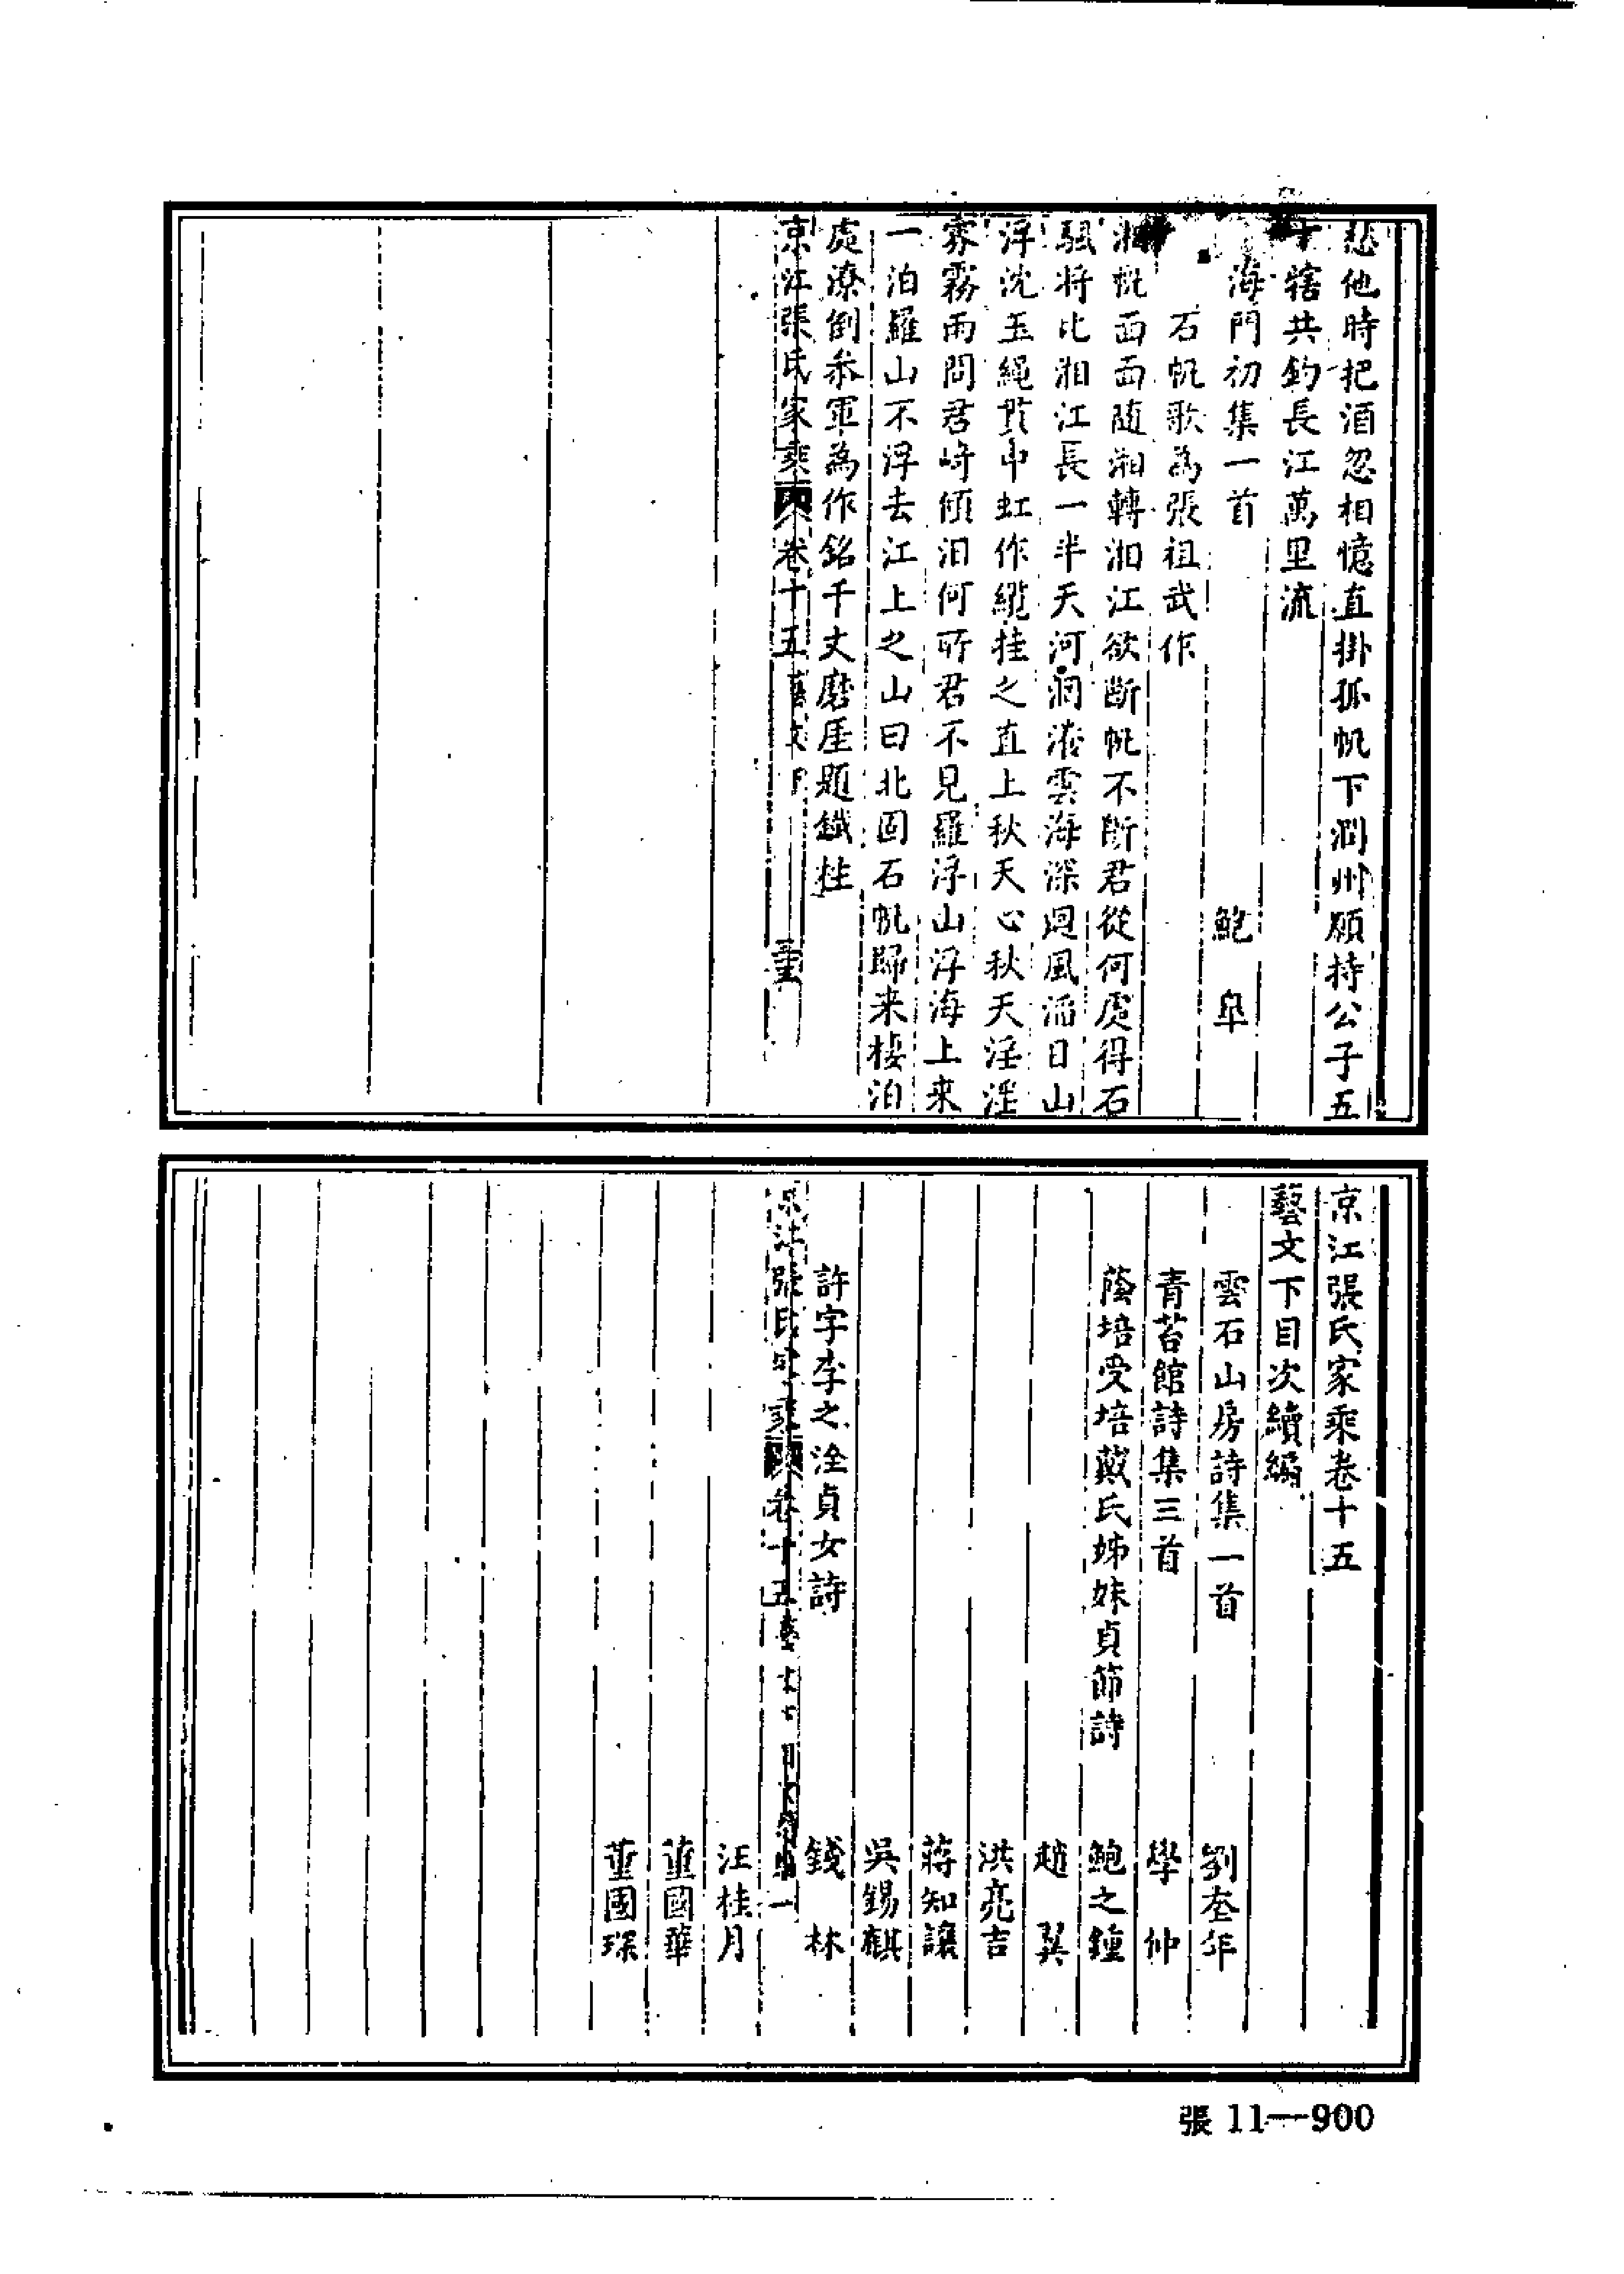 愁他時把酒忽相憶直掛孤帆下潤州願持公子五
十犗共釣長江萬里流
海門初集一首 鮑 臯
石帆歌為張祖武作
湘帆面面随湘轉湘江欲斷帆不斷君從何處得石
颿將比湘江長一半天河洞漭雲海深迴風滔日山
浮沈玉繩貫中虹作纜挂之直上秋天心秋天淫淫
雰霧雨問君峙傾汨何所君不見羅浮山浮海上来
一泊羅山不浮去江上之山曰北固石帆歸来棲泊
處潦倒叅軍為作銘千丈磨厓題鐵柱
京江張氏家乘 卷十五 藝文下
京江張氏家乘卷十五
藝文下目次續編
雲石山房詩集一首 劉奎年
青苔館詩集三首 學 仲
蔭培受培戴氏姊妹貞節詩 鮑之鍾
趙 翼
洪亮吉
蔣知讓
吳錫麒
許字李之洤貞女詩 錢 林
京江張氏家乘 卷十五 藝文下目次續編 一
汪桂月
董國華
董國琛
張 11—900